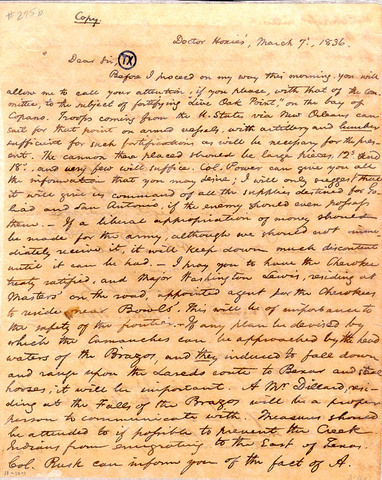 # 2750
Copy
Doctor Hoxies', March 7th, 1836.
Dear Sir, IX
Before I proceed on my way this morning, you will
allow me to call your attention, if you please, with that of the Com-
mittee, to the subject of fortifying "Live Oak Point," on the bay of
Copano. Troops coming from the U. States via New Orleans can
sail for that point on armed vessels, with artillery and lumber
sufficient for such fortifications as will be necessary for the pres-
ent. The cannon there placed should be large pieces, 12s and
18s. and very few will suffice. Col. Power can give you all
the information that you may desire; I will only suggest that
it will give us command of all the supplies destined for Go-
liad and San Antonio, if the enemy should even possess
them. — If a liberal appropriation of money should
be made for the army, although we should not imme-
diately receive it, it will keep down much discontent
until it can be had. — I pray you to have the Cherokee
treaty ratified, and Major Washington Lewis, residing at
Masters' on the road, appointed agent for the Cherokees
to reside near Bowls'. This will be of importance to
the safety of the frontier. — If any plan be devised by
which the Comanches can be approached by the head
waters of the Brazos, and they induced to fall down
and range upon the Laredo route to Bexar and steal
horses, it will be important. A Mr Dillard, resi-
ding at the Falls of the Brazos will be a proper
person to communicate with. Measures should
be attended to if possible to prevent the Creek
Indians from emigrating to the East of Texas.
Col. Rusk can inform you of the fact of A.